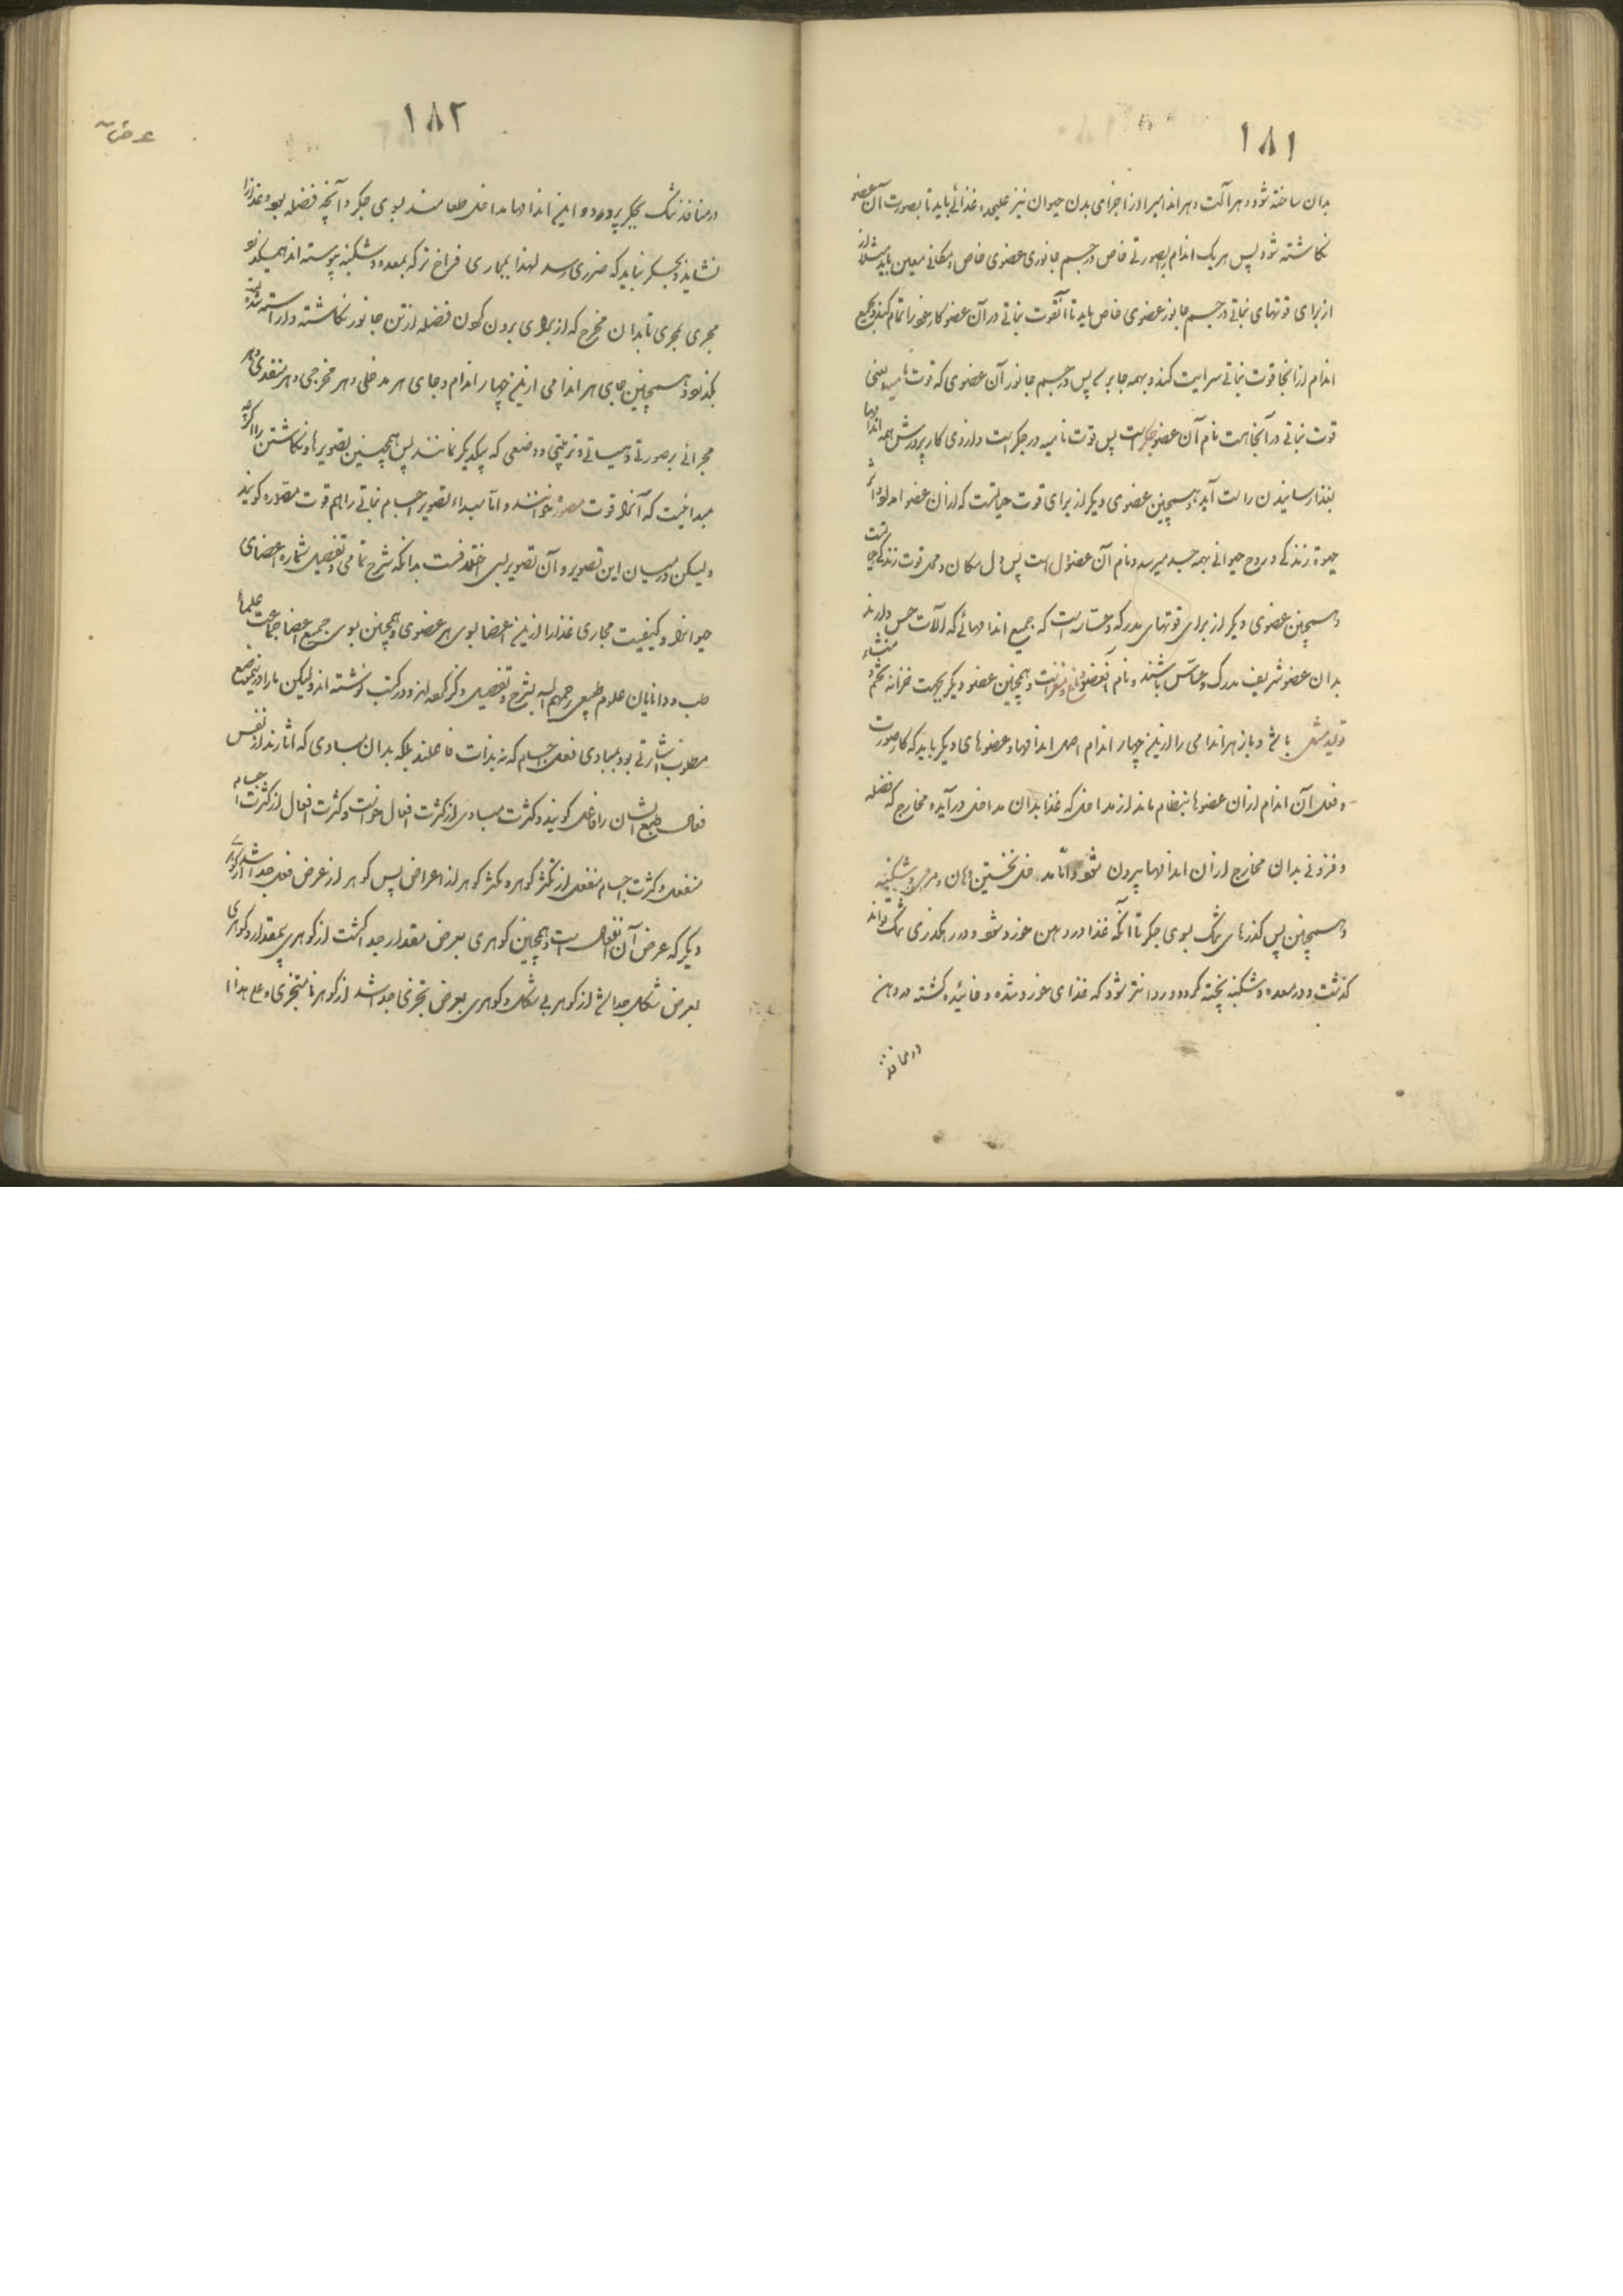 ۱۸۱
بدان ساخته شود و هر آلت و هر اندامیرا از اجزای بدن حیوان نیز علیحده غذائی باید تا بصورت آن عضو
نکاشته شود پس هر یک اندام بصورتی خاص در جسم جانوری عضوی خاص و مکانی معین باید مثلا
از برای قوتهای نباتی در جسم جانور عضوی خاص باید تا آنقوت نباتی در آن عضو کار خود را تمام کند و بجمیع
اندام از انجا قوت نباتی سرایت کند و بهمه جا برسد پس در جسم جانور آن عضوی که قوت نامیه یعنی
قوت نباتی در آنجا است نام آن عضو جکر است پس قوت نامیه در جکر است و از وی کار پرورش همه اندامها
بغذا رسانیدن راست آید و همچنین عضوی دیکر از برای قوت حیاتست که از ان عضو اثر
حیوة زندکی و روح حیوانی بهمه جسد میرسد و نام آن عضو دل است پس دل مکان و محل قوت زندکی
و همچنین عضوی دیکر از برای قوتهای مدرکه و حساسه است که جمیع اندامهائی که آلات حس دارند
بدان عضو شریف مدرک و حساس باشند و نام آنعضو دماغ و مغز است و همچنین عضو دیکر بجهت خزانه تخم و منشاء
تولید مثل باشد و باز هر اندامی را از این چهار اندام اصل اندامها و عضوهای دیکر باید که کار صورت
و فعل آن اندام از ان عضوها بنظام ماند از مداخل که غذا بدان مداخل در آید و مخارج که فضله
و فزونی بدان مخارج از ان اندامها بیرون شود و اما مداخل نخستین دهان و مری و شکنبه
و همچنین پس کذرهای تنک بسوی جکر تا آنکه غذا در دهن خورد شود و در رهکذری تنک تواند
کذشت و در معده و شکنبه پخته کردد و روانتر شود که غذای خورد شده و خائیده کشته در دهن
در منافذ

۱۸۲
در منافذ تنک بجکر پرود و این اندامها مداخل طعامند بسوی جکر و آنچه فضله بود و غذا را
نشاید و بجکر نباید که ضرری رسد لهذا بمجاری فراخ تر که بمعده و شکنبه پیوسته اند همیکذرد
مجری بمجری تا بدان مخرج که از برای برون کردن فضله از تن جانور نکاشته و آراسته شده
بکذرد و همچنین جای هر اندامی از این چهار اندام و جای هر مدخلی و هر مخرجی و هر منفذی و هر
مجرائی بر صورتی و هیاتی و ترتیبی و وضعی که بیکدیکر نمانند پس همچنین تصویرها و نکاشتن را اکرچه
مبدائیست که آنرا قوت مصوره خوانند و اما مبداء تصویر اجسام نباتی را هم قوت مصوره کویند
ولیکن در میان این تصویر و آن تصویر بسی اختلافست بدانکه شرح تمامی و تفصیل شماره اعضای
حیوانرا و کیفیت مجاری غذا را از این اعضا بسوی هر عضوی و همچنین بسوی جمیع اعضا جماعت علماء
طب و دانایان علوم طبیعی رحمهم الله بشرح و تفصیل ذکر کرده اند و در کتب نوشته اند ولیکن ما را در اینموضع
مطلوب اشارتی بود بمبادی فعل اجسام که نه بذات فاعلند بلکه بدان مبادی که آثارند از نفس
فعال بطبع ایشان را فاعل کویند و کثرت مبادی از کثرت افعال خواست و کثرت افعال از کثرت اجسام
منفعل و کثرت اجسام منفعل از تکثر کوهر و تکثر کوهر از اعراض پس کوهر از عرض فعل جدا شد از کوهر
دیکر که عرض آن انفعال است و همچنین کوهری بعرض مقدار جدا کشت از کوهر بیمقدار و کوهری
بعرض شکل جدا شد از کوهر بی شکل و کوهری بعرض تجزی جدا شد از کوهر نامتجزی و علی هذا